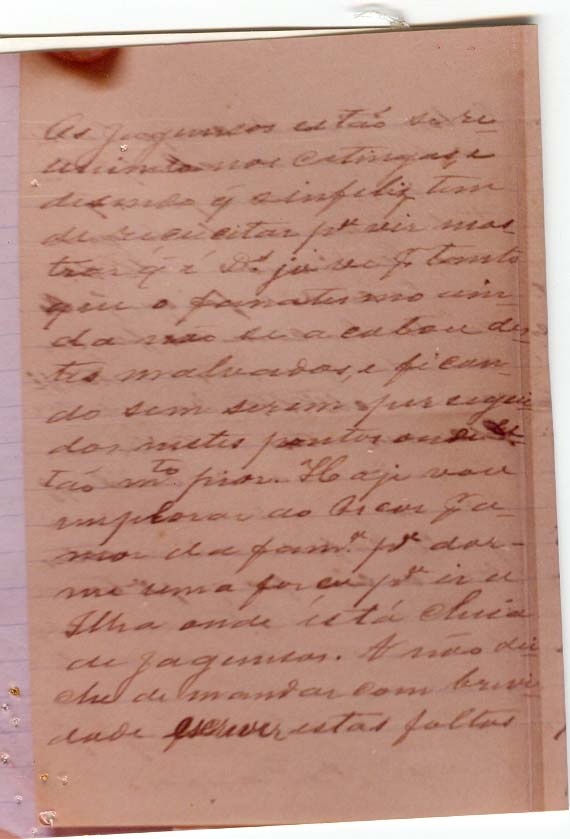 Os jagunsos estão se re
unindo nos catingas, e
dizendo q̃ o infeliz tem
de rececitar pª vir mos
trar q̃ é D.s já vê p.tanto
que o fanatismo ain-
da não se acabou des-
tes malvados, e fican-
do sem serem persegui
dos nestes pontos onde es-
tão m.to pior. Hoje vou
emplorar ao
mor da fam.ª pª dar-
me uma forca pª ir a
Ilha onde está cheia
de jagunsos. V não dei-
che de mandar com brevi
dade escrever estas faltas